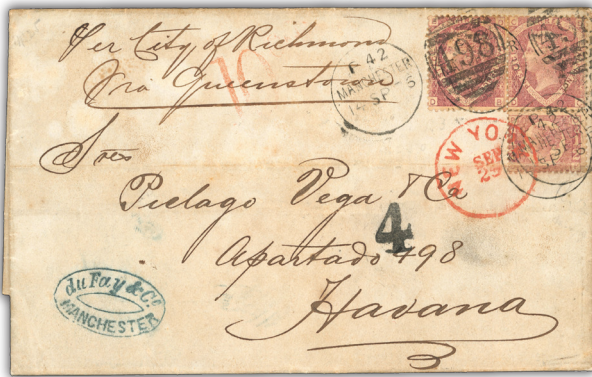 Per City of Richmond
Via Queenstown
10
F. 42
MANCHESTER
SP
498
NEW YO
SEP
29
Sres
Pielago Vega & Ca
4
Apartado 498
Havana
du Fay & Co
MANCHESTER